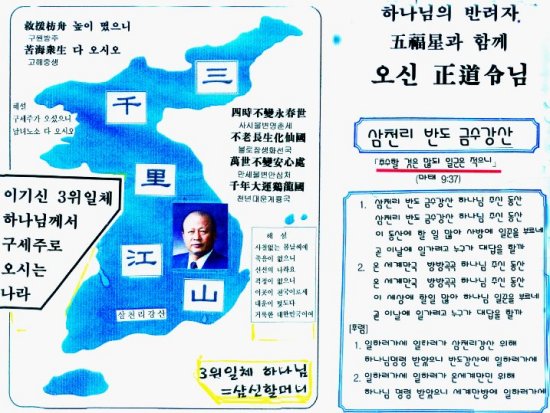 救援枋舟 높이 떴으니
구원방주
苦海衆生 다 오시오
고해중생
해설
구세주가 오셨으니
남녀노소 다 오시오
三
千
里
江
山
삼천리강산
四時不變永春世
사시불변영춘세
不老長生化仙國
불로장생화선국
萬世不變安心處
만세불변안심처
千年大運鷄龍國
천년대운계룡국
해설
사철없는 봄날씨에
죽음이 없으니
신선의 나라요
걱정이 없으니
이곳이 천국이로세
대운이 떳도다
거룩한 대한민국이여
이기신 3위일체
하나님께서
구세주로
오시는
나라
3위일체 하나님
=삼신할머니
하나님의 반려자
五福星과 함께
오신 正道令님
삼천리 반도 금수강산
「추수할 것은 많되 일군은 적으니」
(마태 9:37)
1. 삼천리 반도 금수강산 하나님 주신 동산
삼천리 반도 금수강산 하나님 주신 동산
이 동산에 할 일 많아 사방에 일군을 부르네
곧 이날에 일가려고 누구가 대답을 할까
2. 온 세계만국 방방곡곡 하나님 주신 동산
온 세계만국 방방곡곡 하나님 주신 동산
이 세상에 할일 많아 하나님 일군을 부르네
곧 이날에 일가려고 누구가 대답을 할까
[후렴]
1. 일하러가세 일하러 가 삼천리강산 위해
하나님명령 받았으니 반도강산에 일하러가세
2. 일하러가세 일하러 가 온세계만민 위해
하나님 명령 받았으니 세계만방에 일하러가세